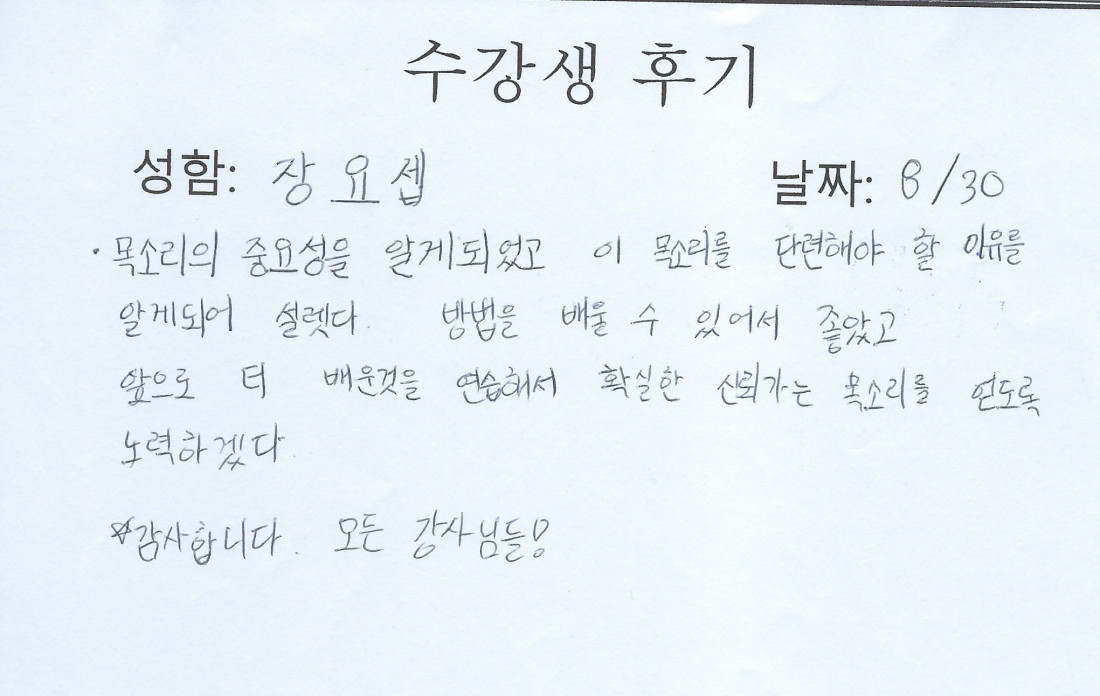 수강생 후기
성함: 장요셉 날짜: 8/30
· 목소리의 중요성을 알게되었고 이 목소리를 단련해야 할 이유를
알게되어 설렛다. 방법을 배울 수 있어서 좋았고
앞으로 더 배운것을 연습해서 확실한 신뢰가는 목소리를 얻도록
노력하겠다.
*감사합니다. 모든 강사님들!